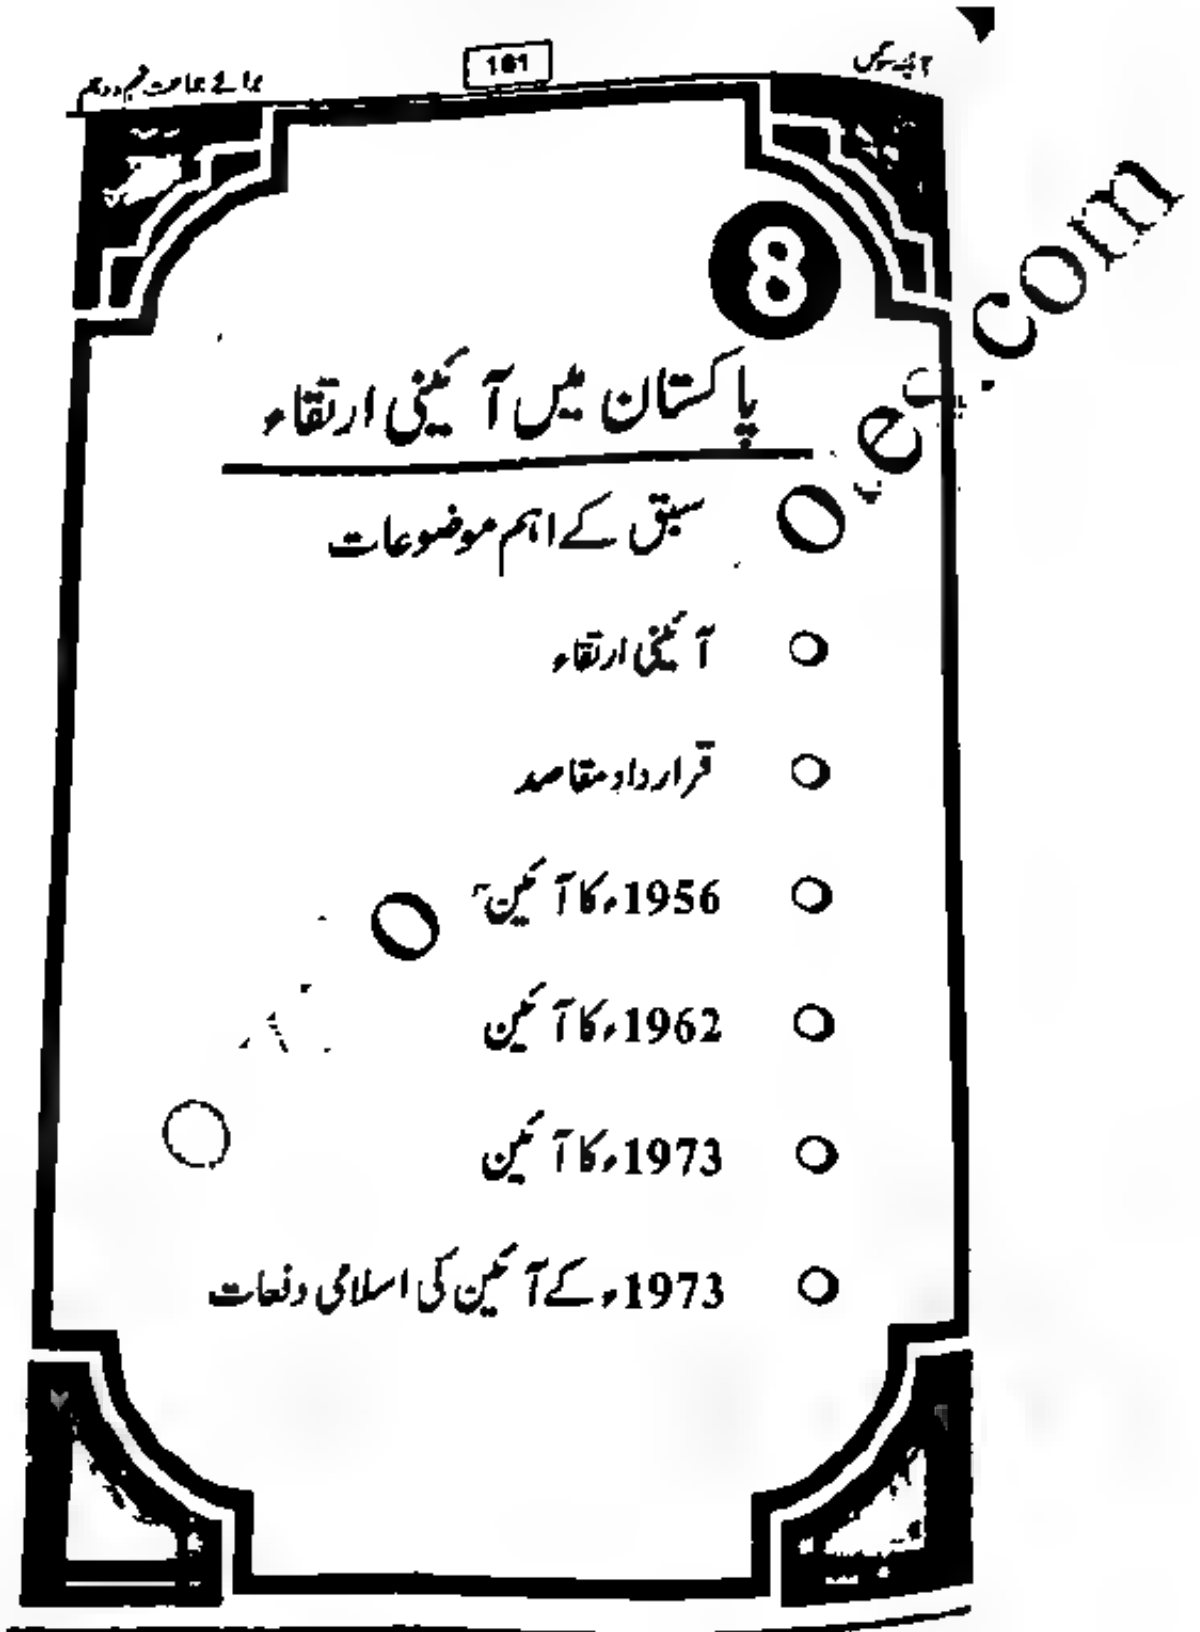 181
برائے جماعت نہم و دہم
8
پاکستان میں آئینی ارتقاء
سبق کے اہم موضوعات
آئینی ارتقاء
قرارداد مقاصد
1956ء کا آئین
1962ء کا آئین
1973ء کا آئین
1973ء کے آئین کی اسلامی دفعات
.com